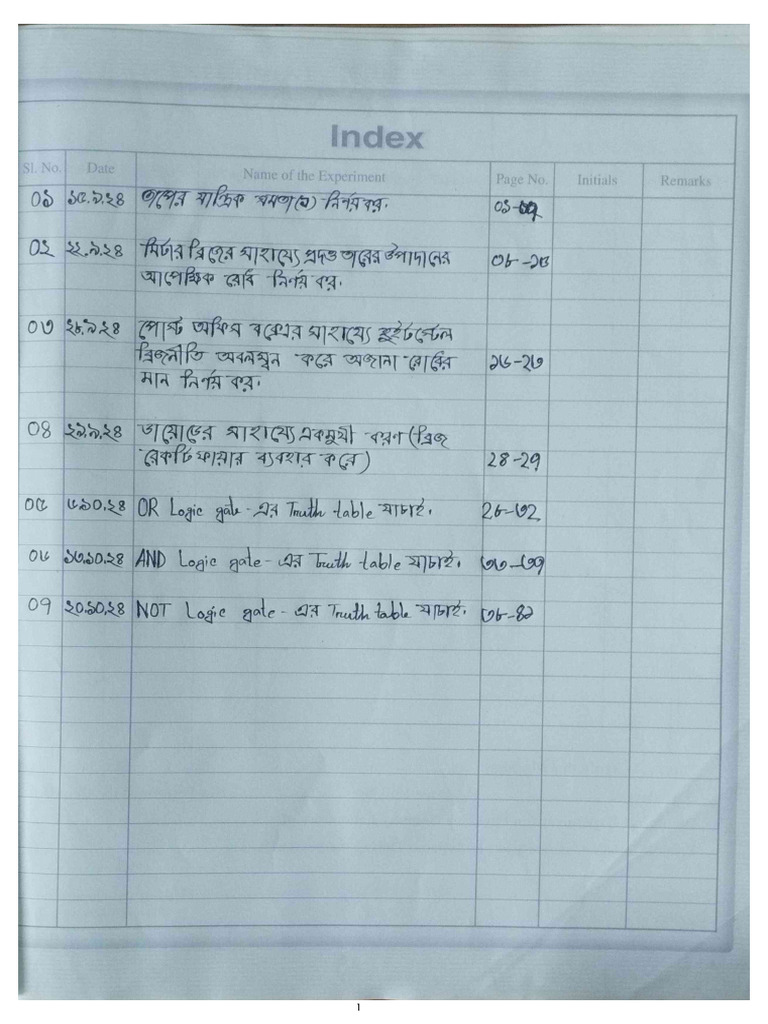 Index
Sl. No. Date Name of the Experiment Page No. Initials Remarks
০১ ১৫.৯.২৪ তাপের যান্ত্রিক সমতা(J) নির্ণয় কর.
০২ ২২.৯.২৪ মিটার ব্রিজের সাহায্যে প্রদত্ত তারের উপাদানের ০৮-১৫
আপেক্ষিক রোধ নির্ণয় কর.
০৩ ২৮.৯.২৪ পোস্ট অফিস বক্সের সাহায্যে হুইটস্টোন
ব্রিজনীতি অবলম্বন করে অজানা রোধের ১৬-২৩
মান নির্ণয় কর.
০৪ ২৯.৯.২৪ ডায়োডের সাহায্যে একমুখী করণ (ব্রিজ
রেকটিফায়ার ব্যবহার করে) ২৪-২৭
০৫ ৬.১০.২৪ OR Logic gate-এর Truth table যাচাই. ২৮-৩২
০৬ ১৩.১০.২৪ AND Logic gate-এর Truth table যাচাই. ৩৩-৩৭
০৭ ২০.১০.২৪ NOT Logic gate-এর Truth table যাচাই. ৩৮-৪১
1